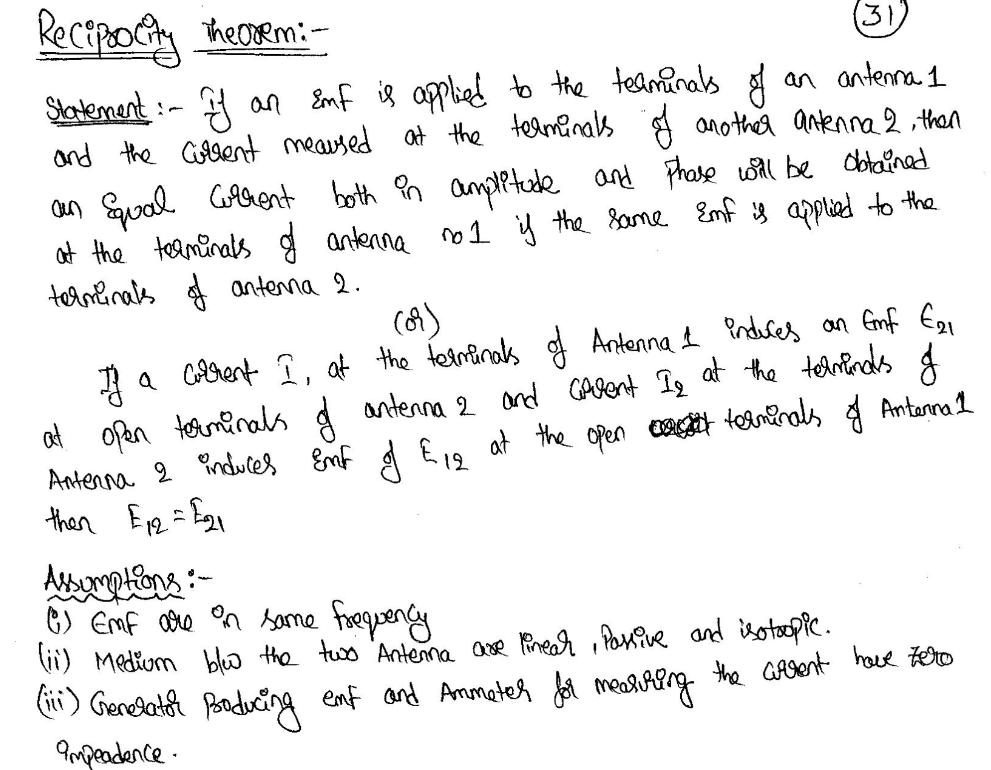 (31)
Reciprocity Theorem:-
Statement :- If an Emf is applied to the terminals of an antenna 1
and the current meaused at the terminals of another antenna 2, then
an Equal Current both in amplitude and Phase will be obtained
at the terminals of antenna no 1 if the same Emf is applied to the
terminals of antenna 2.
(or)
If a current I, at the terminals of Antenna 1 induces an Emf E21
at open terminals of antenna 2 and current I2 at the terminals of
Antenna 2 induces Emf of E12 at the open terminals of Antenna 1
then E12 = E21
Assumptions :-
(i) Emf are in same frequency
(ii) Medium b/w the two Antenna are linear, Passive and isotropic.
(iii) Generator Producing emf and Ammeter for measuring the current have zero
Impeadence.